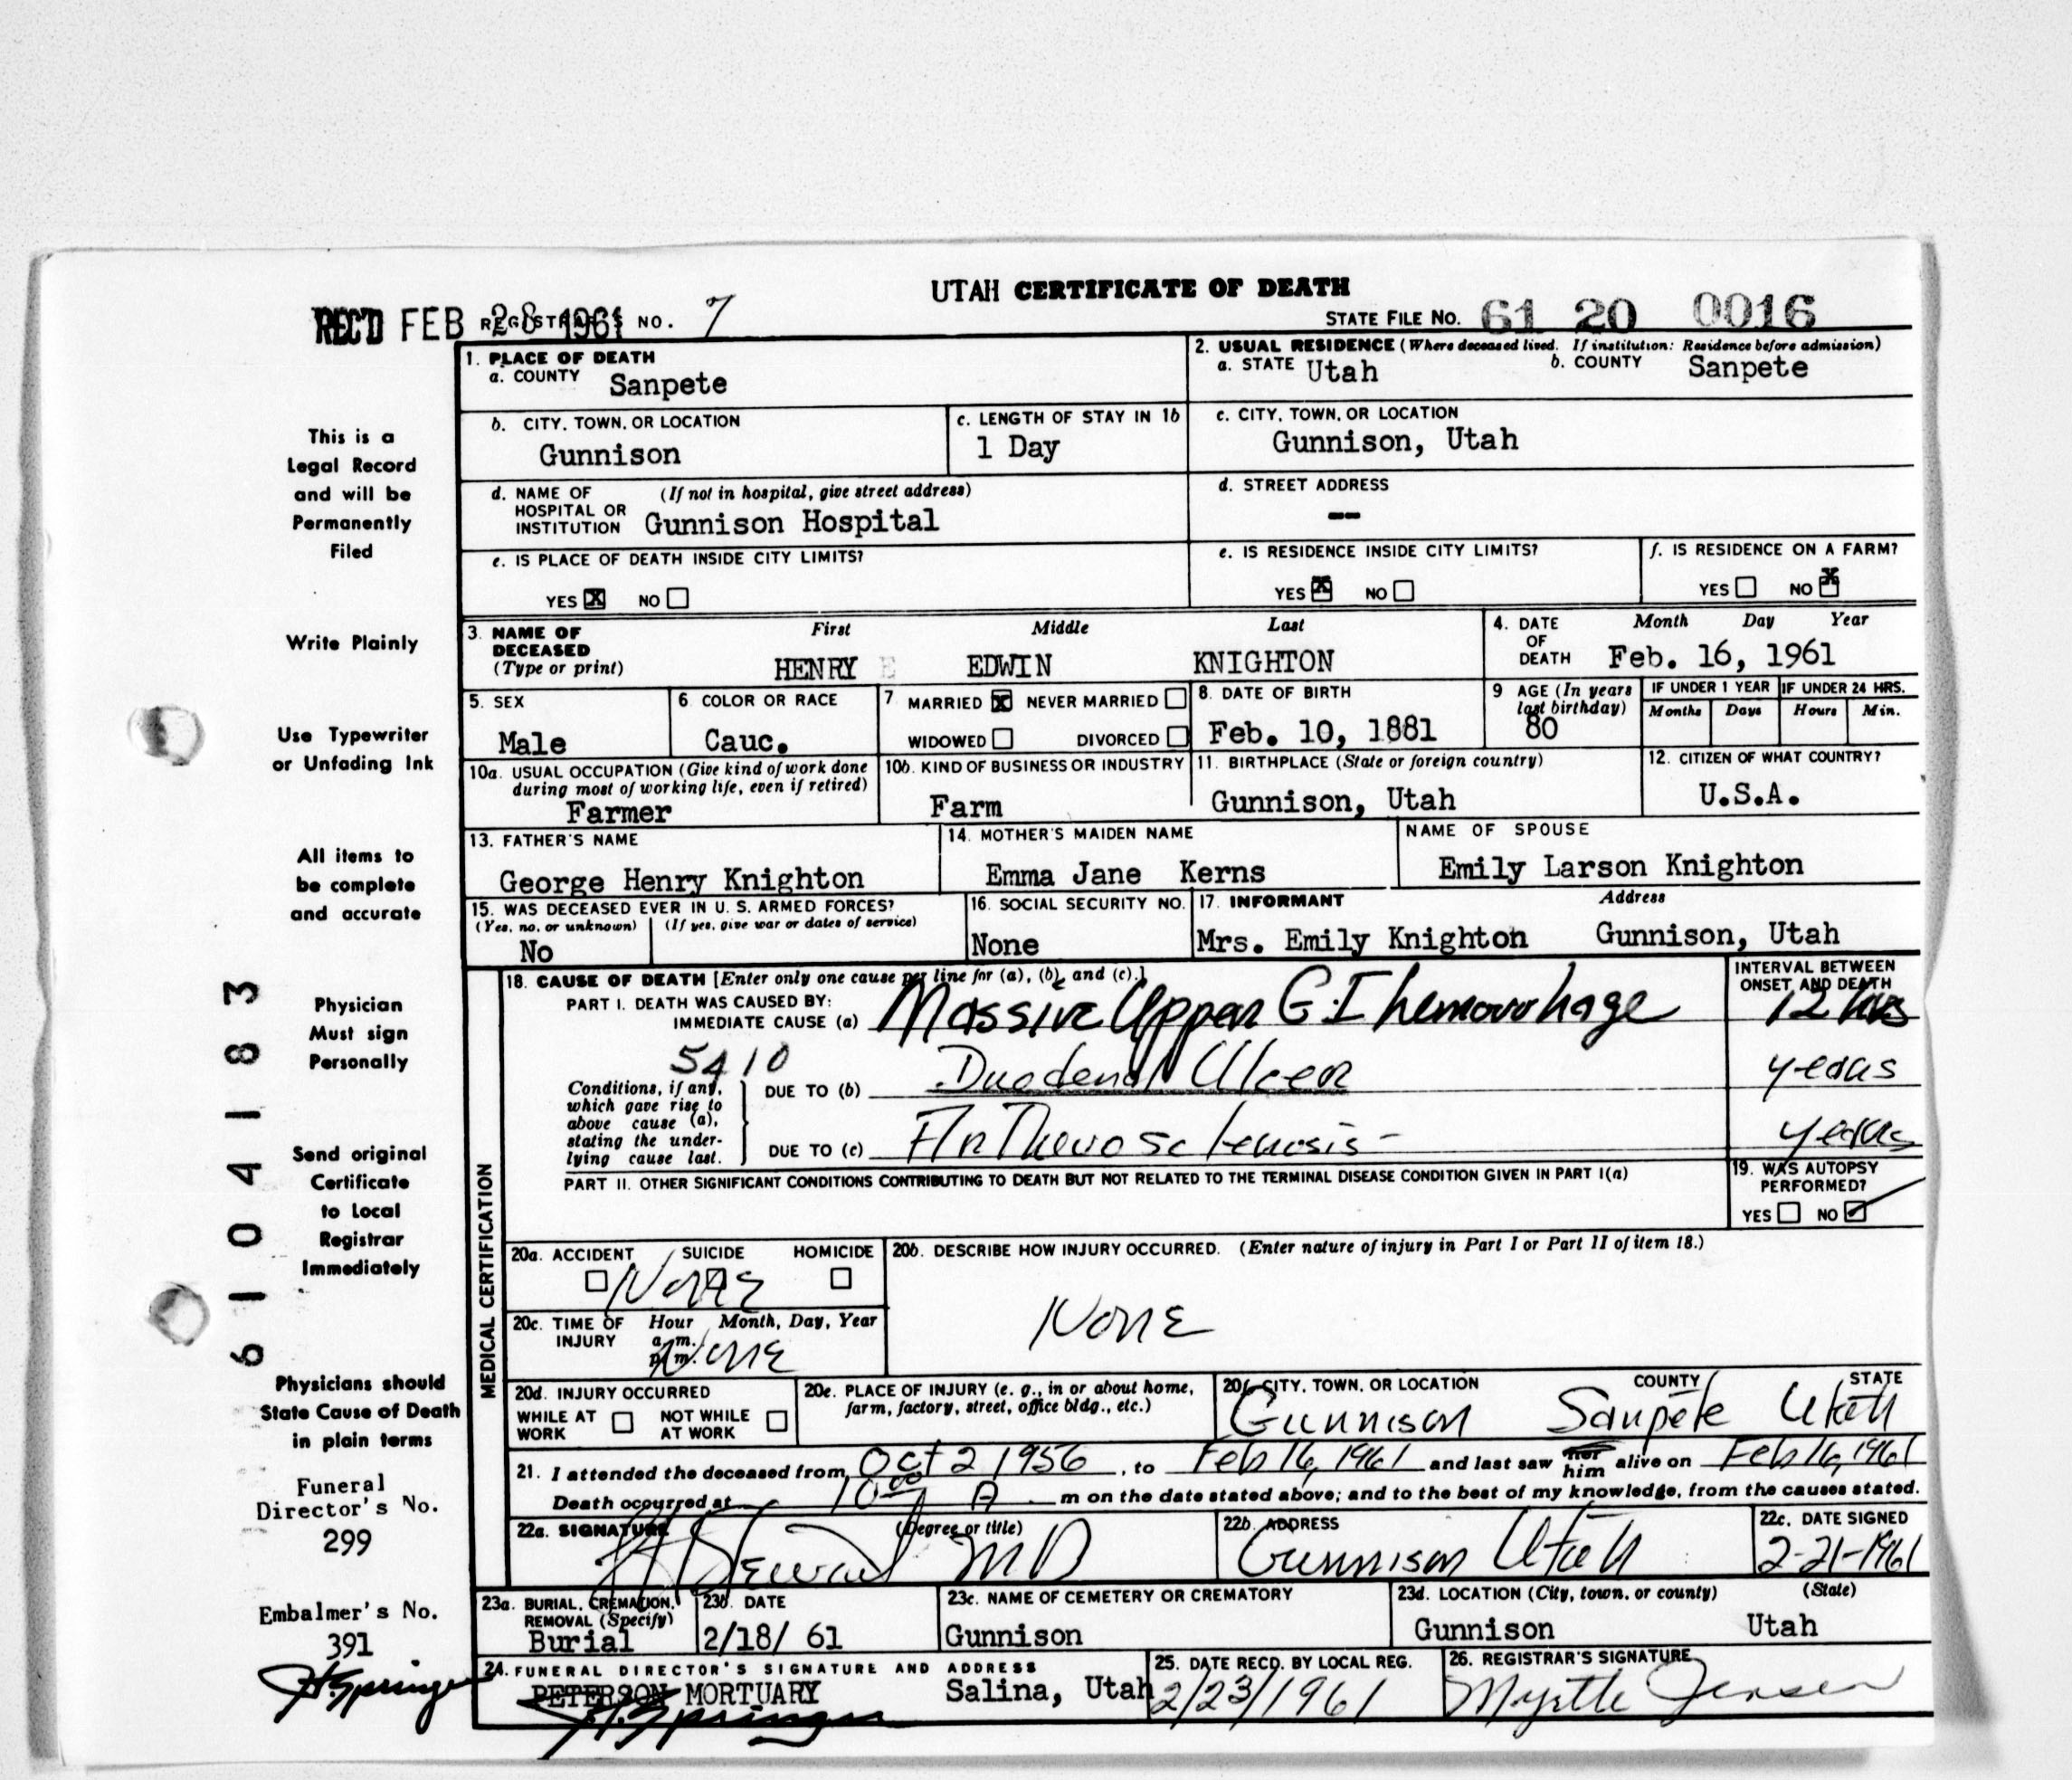 UTAH CERTIFICATE OF DEATH
REC'D FEB 28 1961 REGISTRAR'S NO. 7
STATE FILE NO. 61 20 0016
1. PLACE OF DEATH
a. COUNTY Sanpete
2. USUAL RESIDENCE (Where deceased lived. If institution: Residence before admission)
a. STATE Utah b. COUNTY Sanpete
b. CITY, TOWN, OR LOCATION
Gunnison
c. LENGTH OF STAY IN 1b
1 Day
c. CITY, TOWN, OR LOCATION
Gunnison, Utah
d. NAME OF (If not in hospital, give street address)
HOSPITAL OR
INSTITUTION Gunnison Hospital
d. STREET ADDRESS
--
e. IS PLACE OF DEATH INSIDE CITY LIMITS?
YES X NO
e. IS RESIDENCE INSIDE CITY LIMITS?
YES X NO
f. IS RESIDENCE ON A FARM?
YES NO X
3. NAME OF DECEASED
(Type or print)
First Middle Last
HENRY E EDWIN KNIGHTON
4. DATE OF DEATH
Month Day Year
Feb. 16, 1961
5. SEX
Male
6 COLOR OR RACE
Cauc.
7 MARRIED X NEVER MARRIED
WIDOWED DIVORCED
8. DATE OF BIRTH
Feb. 10, 1881
9 AGE (In years
last birthday)
80
IF UNDER 1 YEAR IF UNDER 24 HRS.
Months Days Hours Min.
10a. USUAL OCCUPATION (Give kind of work done
during most of working life, even if retired)
Farmer
10b. KIND OF BUSINESS OR INDUSTRY
Farm
11. BIRTHPLACE (State or foreign country)
Gunnison, Utah
12. CITIZEN OF WHAT COUNTRY?
U.S.A.
13. FATHER'S NAME
George Henry Knighton
14. MOTHER'S MAIDEN NAME
Emma Jane Kerns
NAME OF SPOUSE
Emily Larson Knighton
15. WAS DECEASED EVER IN U. S. ARMED FORCES?
(Yes, no, or unknown) (If yes, give war or dates of service)
No
16. SOCIAL SECURITY NO.
None
17. INFORMANT Address
Mrs. Emily Knighton Gunnison, Utah
MEDICAL CERTIFICATION
18. CAUSE OF DEATH [Enter only one cause per line for (a), (b), and (c).]
PART I. DEATH WAS CAUSED BY:
IMMEDIATE CAUSE (a) Massive Upper G.I hemorrhage
INTERVAL BETWEEN
ONSET AND DEATH
12 hrs
5410
Conditions, if any,
which gave rise to
above cause (a),
stating the under-
lying cause last.
DUE TO (b) Duodenal Ulcer
years
DUE TO (c) Artherosclerosis -
years
PART II. OTHER SIGNIFICANT CONDITIONS CONTRIBUTING TO DEATH BUT NOT RELATED TO THE TERMINAL DISEASE CONDITION GIVEN IN PART I(a)
19. WAS AUTOPSY
PERFORMED?
YES NO ✓
20a. ACCIDENT SUICIDE HOMICIDE
None
20b. DESCRIBE HOW INJURY OCCURRED. (Enter nature of injury in Part I or Part II of item 18.)
None
20c. TIME OF INJURY
Hour Month, Day, Year
a.m.
p.m.
None
20d. INJURY OCCURRED
WHILE AT WORK NOT WHILE AT WORK
20e. PLACE OF INJURY (e. g., in or about home,
farm, factory, street, office bldg., etc.)
20f. CITY, TOWN, OR LOCATION COUNTY STATE
Gunnison Sanpete Utah
21. I attended the deceased from Oct 2 1956, to Feb 16, 1961 and last saw her him alive on Feb 16, 1961
Death occurred at 10 00 A m on the date stated above; and to the best of my knowledge, from the causes stated.
22a. SIGNATURE (Degree or title)
MD
22b. ADDRESS
Gunnison Utah
22c. DATE SIGNED
2-21-1961
23a. BURIAL, CREMATION,
REMOVAL (Specify)
Burial
23b. DATE
2/18/ 61
23c. NAME OF CEMETERY OR CREMATORY
Gunnison
23d. LOCATION (City, town, or county) (State)
Gunnison Utah
24. FUNERAL DIRECTOR'S SIGNATURE AND ADDRESS
PETERSON MORTUARY Salina, Utah
Springer
25. DATE RECD. BY LOCAL REG.
2/23/1961
26. REGISTRAR'S SIGNATURE
Myrtle Jensen
This is a
Legal Record
and will be
Permanently
Filed
Write Plainly
Use Typewriter
or Unfading Ink
All items to
be complete
and accurate
Physician
Must sign
Personally
Send original
Certificate
to Local
Registrar
Immediately
Physicians should
State Cause of Death
in plain terms
Funeral
Director's No.
299
Embalmer's No.
391
Springer
6104183